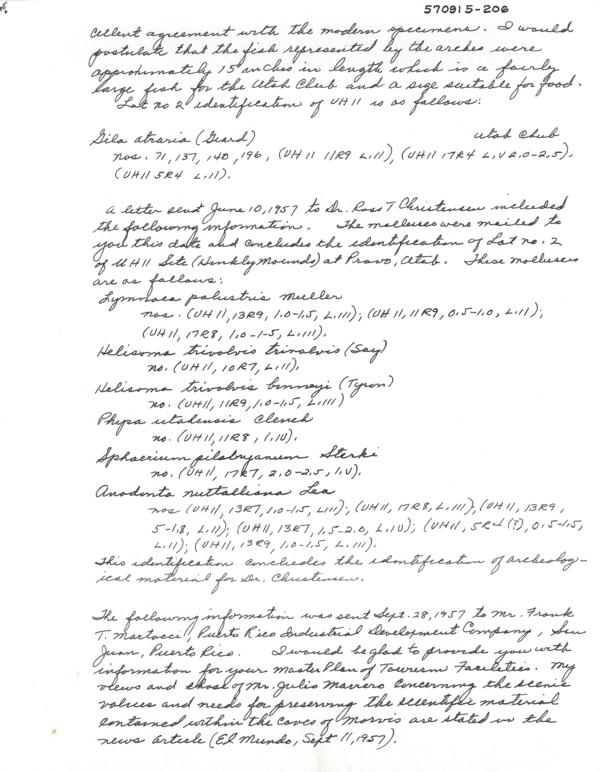 570915-206
cellent agreement with the modern specimens. I would
postulate that the fish represented by the arches were
approximately 15 inches in length which is a fairly
large fish for the Utah Chub and a size suitable for food.
Lot no 2 identification of UH11 is as follows:
Gila atraria (Girard) Utah Chub
nos. 71, 137, 140, 196, (UH11 11R9 L.11), (UH11 17R4 L.V 2.0-2.5).
(UH11 5R4 L.11).
A letter sent June 10, 1957 to Dr. Ross T Christensen included
the following information. The molluscs were mailed to
you this date and concludes the identification of Lot no. 2
of UH11 Site (Hinkly Mounds) at Provo, Utah. These molluscs
are as follows:
Lymnaea palustris Muller
nos. (UH11, 13R9, 1.0-1.5, L.111); (UH11, 11R9, 0.5-1.0, L.11);
(UH11, 17R8, 1.0-1-5, L.111).
Helisoma trivolvis trivolvis (Say)
no. (UH11, 10R7, L.11).
Helisoma trivolvis binneyi (Tryon)
no. (UH11, 11R9, 1.0-1.5, L.111)
Physa utahensis Clench
no. (UH11, 11R8, L.IV).
Sphaerium pilsbryanum Sterki
no. (UH11, 17R7, 2.0-2.5, L.V).
Anodonta nuttalliana Lea
nos (UH11, 13R7, 1.0-1.5, L.11); (UH11, 17R8, L.111), (UH11, 13R9,
5-1.8, L.11); (UH11, 13R7, 1.5-2.0, L.IV); (UH11, 5R4(?), 0.5-1.5,
L.11); (UH11, 13R9, 1.0-1.5, L.111).
This identification concludes the identification of archeolog-
ical material for Dr. Christensen.
The following information was sent Sept. 28, 1957 to Mr. Frank
T. Martocci, Puerto Rico Industrial Development Company, San
Juan, Puerto Rico. I would be glad to provide you with
information for your Master Plan of Tourism Facilities. My
views and those of Mr. Julio Marrero concerning the scenic
values and needs for preserving the scientific material
contained within the Caves of Morovis are stated in the
news article (El Mundo, Sept 11, 1957).